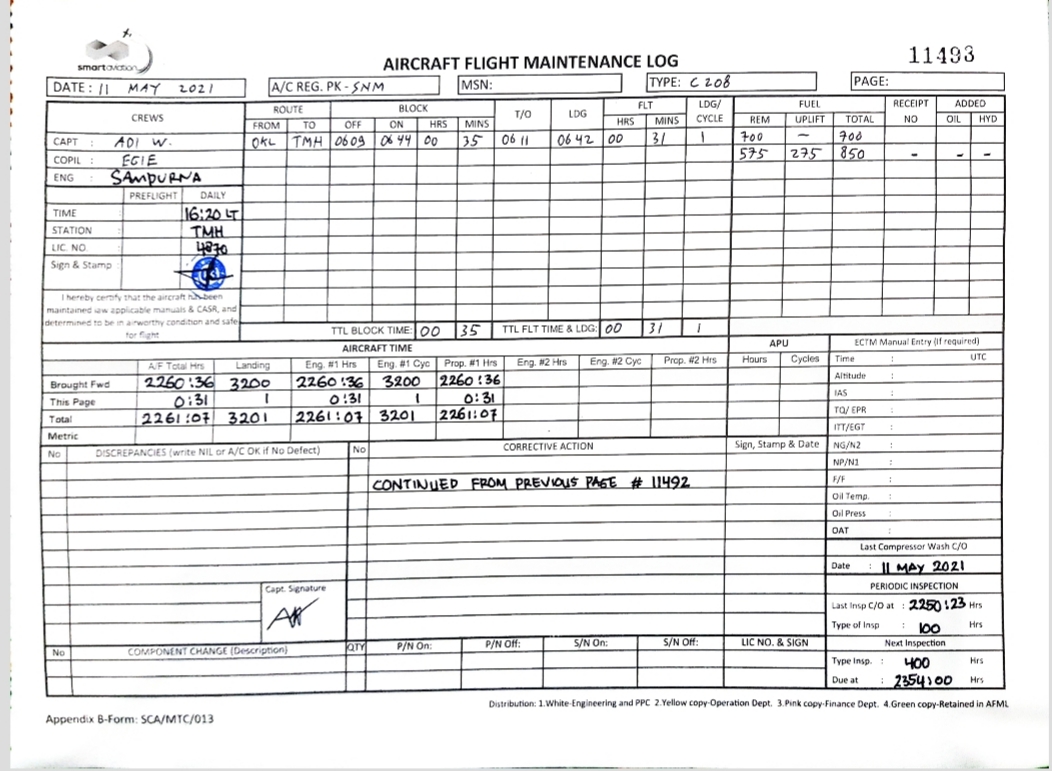 smartaviation
AIRCRAFT FLIGHT MAINTENANCE LOG
11493
DATE : 11 MAY 2021 A/C REG. PK - SNM MSN: TYPE: C 208 PAGE:
CREWS ROUTE BLOCK T/O LDG FLT LDG/ CYCLE FUEL RECEIPT NO ADDED
FROM TO OFF ON HRS MINS HRS MINS REM UPLIFT TOTAL OIL HYD
CAPT : ADI W. OKL TMH 0609 0644 00 35 0611 0642 00 31 1 700 – 700
COPIL : EGIE 575 275 850 - - -
ENG : SAMPURNA
PREFLIGHT DAILY
TIME : 16:20 LT
STATION : TMH
LIC. NO. : 4870
Sign & Stamp :
I hereby certify that the aircraft has been
maintained iaw applicable manuals & CASR, and
determined to be in airworthy condition and safe
for flight
TTL BLOCK TIME: 00 35 TTL FLT TIME & LDG: 00 31 1
AIRCRAFT TIME APU ECTM Manual Entry (if required)
A/F Total Hrs Landing Eng. #1 Hrs Eng. #1 Cyc Prop. #1 Hrs Eng. #2 Hrs Eng. #2 Cyc Prop. #2 Hrs Hours Cycles Time : UTC
Brought Fwd 2260:36 3200 2260:36 3200 2260:36 Altitude :
This Page 0:31 1 0:31 1 0:31 IAS :
Total 2261:07 3201 2261:07 3201 2261:07 TQ/ EPR :
Metric ITT/EGT :
No DISCREPANCIES (write NIL or A/C OK if No Defect) No CORRECTIVE ACTION Sign, Stamp & Date NG/N2 :
NP/N1 :
CONTINUED FROM PREVIOUS PAGE # 11492 F/F :
Oil Temp. :
Oil Press :
OAT :
Last Compressor Wash C/O
Date : 11 MAY 2021
Capt. Signature PERIODIC INSPECTION
Last Insp C/O at : 2250:23 Hrs
Type of Insp : 100 Hrs
No COMPONENT CHANGE (Description) QTY P/N On: P/N Off: S/N On: S/N Off: LIC NO. & SIGN Next Inspection
Type Insp. : 400 Hrs
Due at : 2354:00 Hrs
Distribution: 1.White-Engineering and PPC 2.Yellow copy-Operation Dept. 3.Pink copy-Finance Dept. 4.Green copy-Retained in AFML
Appendix B-Form: SCA/MTC/013